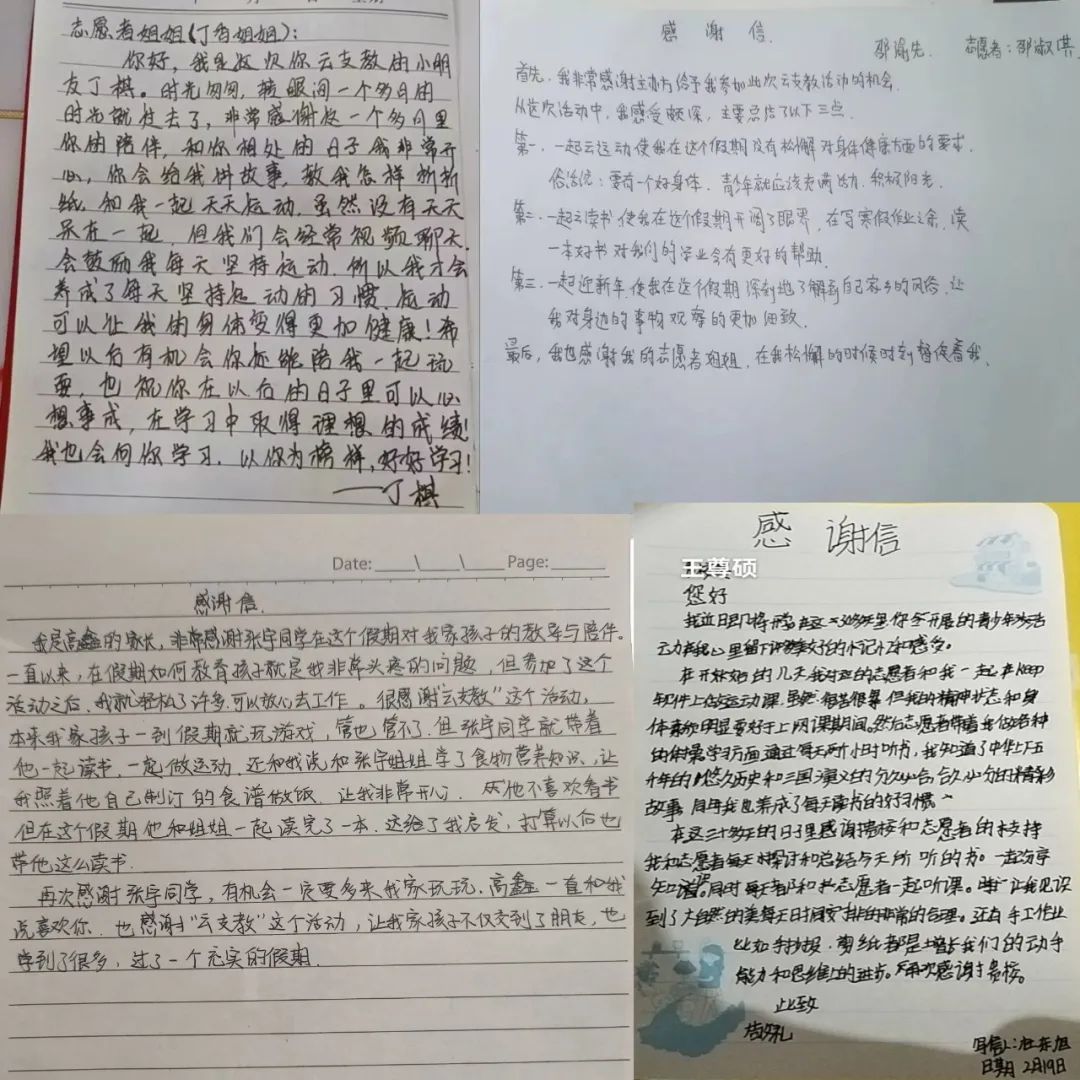 志愿者姐姐(丁香姐姐):
你好,我是这次你云支教的小朋
友丁棋。时光匆匆,转眼间一个多月的
时光就过去了,非常感谢这一个多月里
你的陪伴,和你相处的日子我非常开
心,你会给我讲故事,教我怎样折折
纸,和我一起天天运动,虽然没有天天
呆在一起,但我们会经常视频聊天,
会鼓励我每天坚持运动,所以我才会
养成了每天坚持运动的习惯,运动
可以让我的身体变得更加健康!希
望以后有机会你还能陪我一起玩
耍,也祝你在以后的日子里可以心
想事成,在学习中取得理想的成绩!
我也会向你学习,以你为榜样,好好学习!
——丁棋
感谢信
邵 先 志愿者:邵淑琪
首先,我非常感谢主办方给予我参加此次云支教活动的机会.
从这次活动中,我感受颇深,主要总结了以下三点.
第一.一起云运动使我在这个假期没有松懈对身体健康方面的要求.
俗话说:要有一个好身体.青少年就应该充满活力.积极阳光.
第二.一起云读书使我在这个假期开阔了眼界,在写寒假作业之余,读
一本好书对我们的学业会有更好的帮助.
第三.一起迎新年,使我在这个假期深刻地了解到自己家乡的风俗,让
我对身边的事物观察的更加细致.
最后,我也感谢我的志愿者姐姐,在我松懈的时候时刻督促着我.
Date: \ \ Page:
感谢信
我是高鑫的家长,非常感谢张宇同学在这个假期对我家孩子的教导与陪伴.
一直以来,在假期如何教育孩子就是我非常头疼的问题,但参加了这个
活动之后,我就轻松了许多,可以放心去工作。很感谢"云支教"这个活动,
本来我家孩子一到假期就玩游戏,管也管不了.但张宇同学就带着
他一起读书,一起做运动,还和我说和张宇姐姐学了食物营养知识,让
我照着他自己制订的食谱做饭,让我非常开心. 他不喜欢看书
但在这个假期他和姐姐一起读完了一本.这给了我启发,打算以后也
带他这么读书.
再次感谢张宇同学,有机会一定要多来我家玩玩,高鑫一直和我
说喜欢你.也感谢"云支教"这个活动,让我家孩子不仅交到了朋友,也
学到了很多,过了一个充实的假期.
感谢信
王尊硕
您好
我近日即将 在这三十多天里你 开展的青少年
云支教 里留下许 的忘记和感受。
在开始的几天我对应的志愿者和我一起在keep
软件上 运动课.虽然 很累 但我的精神状态和身
体素质明显要好于上网课期间.然后志愿者带着我做各种
的 学习方面通过每天两小时听书,我知道了中华上下五
千年的悠久历史和三国演义的分久必合合久必分的精彩
故事 同时我也养成了每天读书的好习惯。
在这三十多天的日子里感谢 校和志愿者的支持
我和志愿者每天探讨和总结今天所听的书。一起分享
知识。同时每天都和志愿者一起听课。 让我见识
到了大自然的美每天时间安排的非常的合理。还有手工作业
比如手抄报,剪纸都是增长我们的动手
能力和思维上的进步。再次感谢 校。
此致
敬礼
写信人: 东旭
日期 2月19日